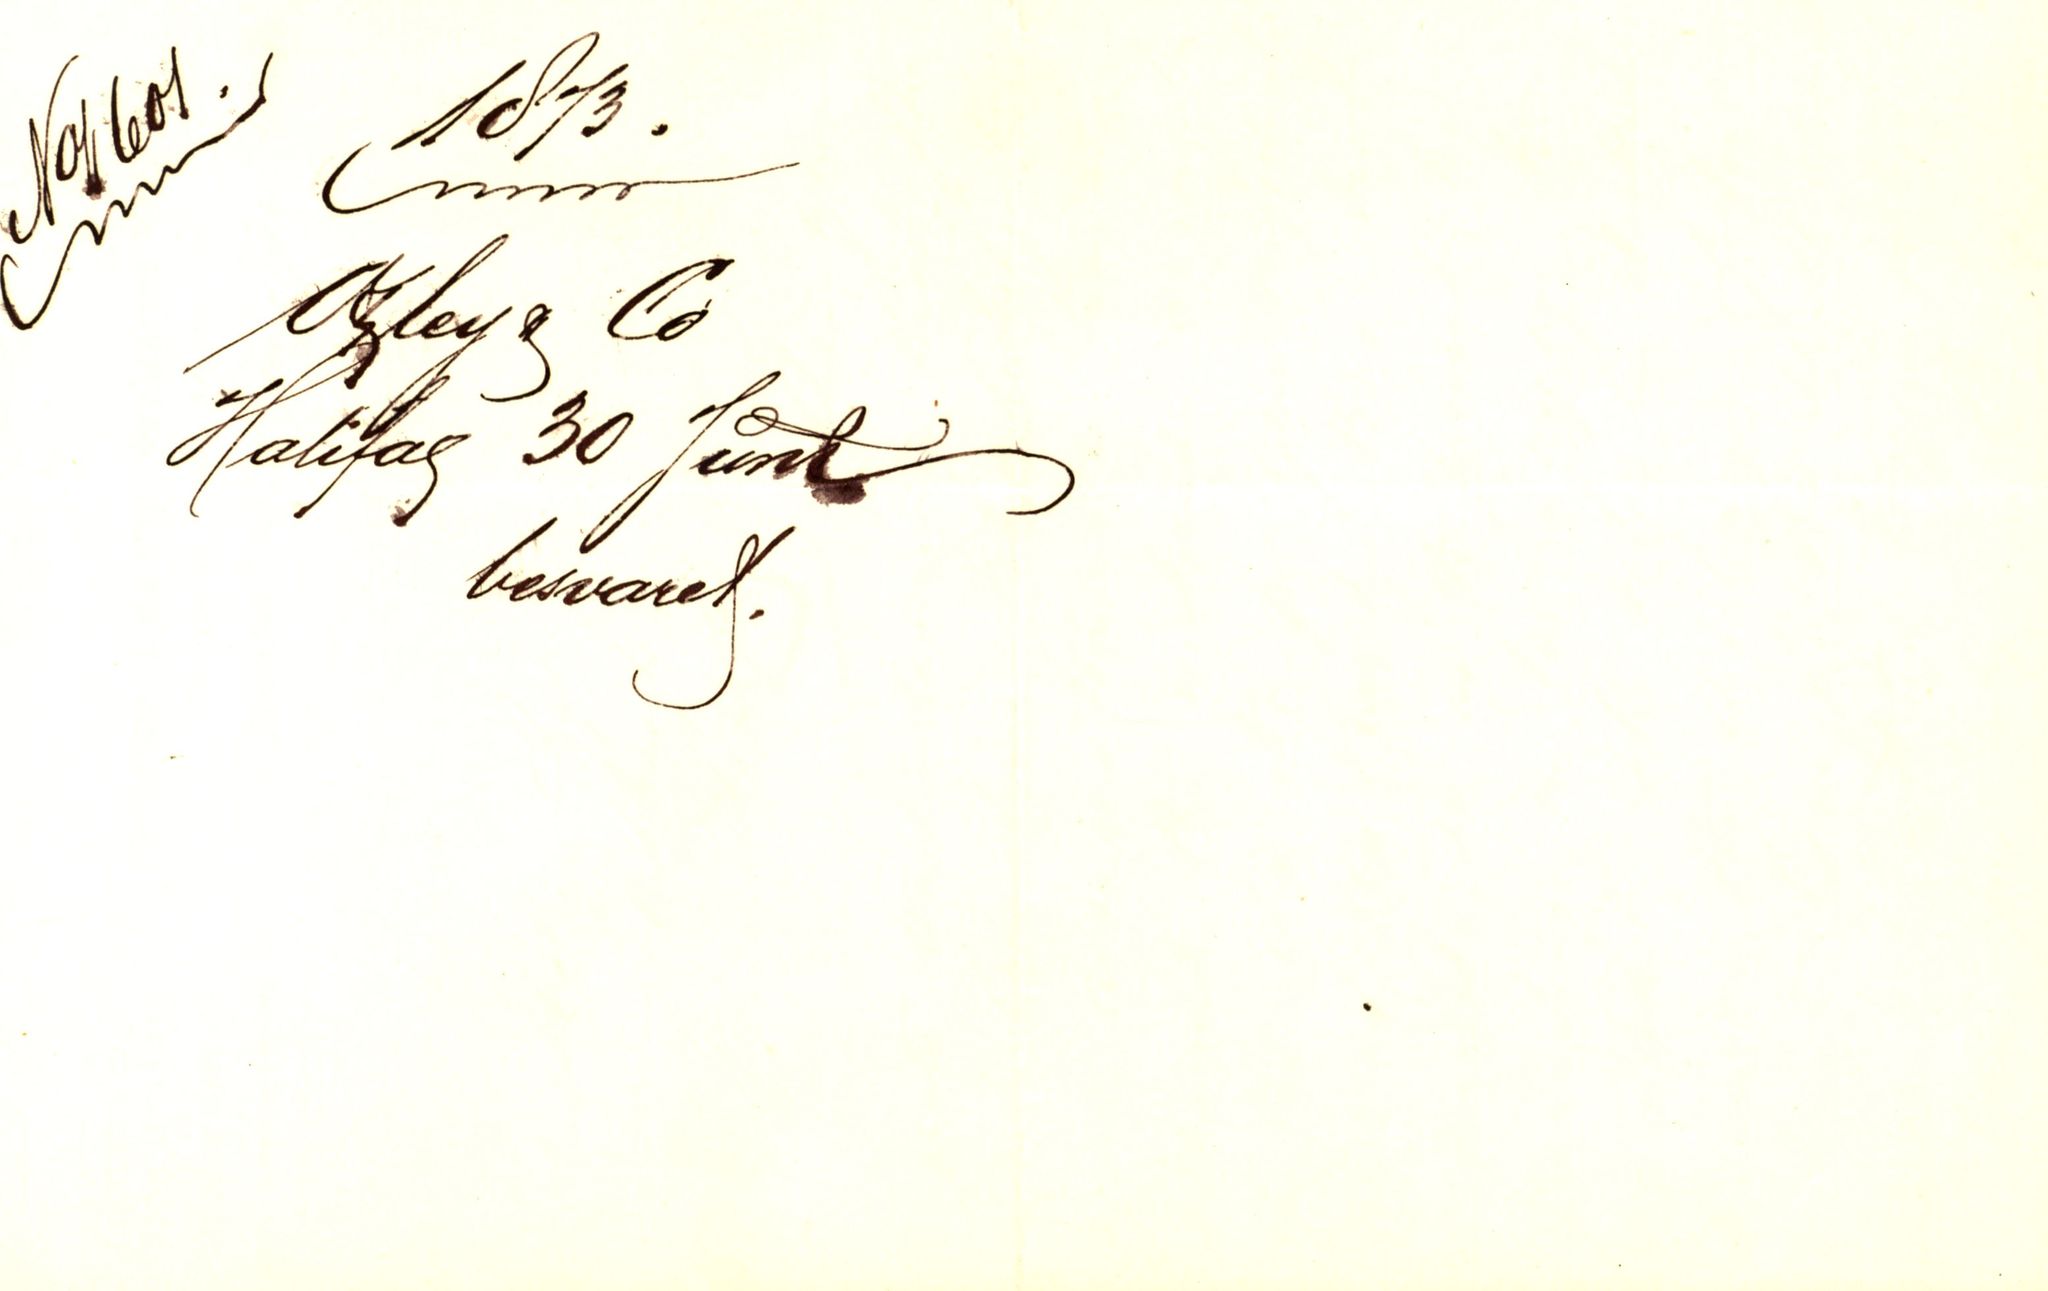 No 1601.
1873.
Oxley & Co
Halifax 30 Juni
besvaret.